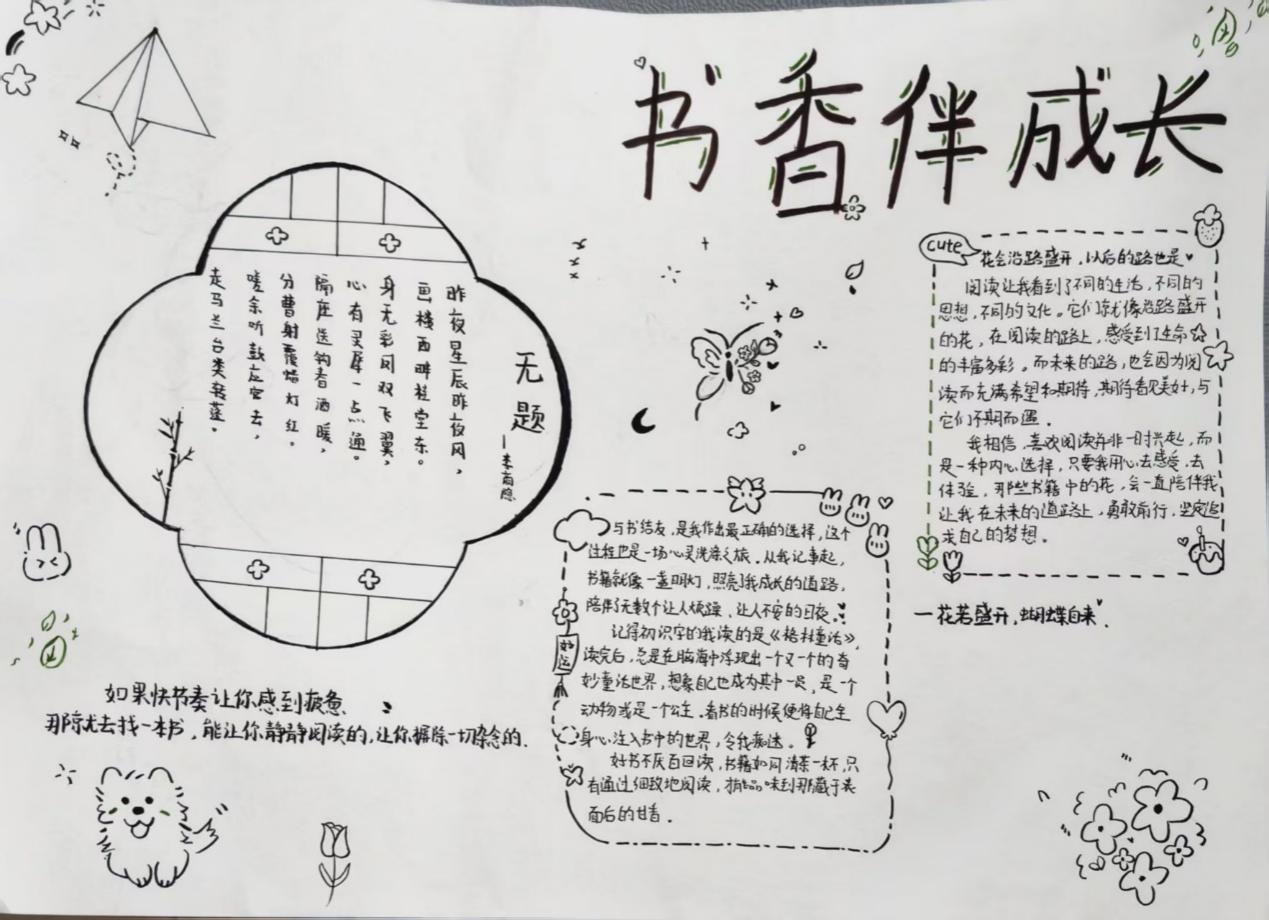 书香伴成长
无题
—李商隐
昨夜星辰昨夜风，
画楼西畔桂堂东。
身无彩凤双飞翼，
心有灵犀一点通。
隔座送钩春酒暖，
分曹射覆蜡灯红。
嗟余听鼓应官去，
走马兰台类转蓬。
cute
花会沿路盛开，以后的路也是
阅读让我看到了不同的生活，不同的
思想，不同的文化。它们就像沿路盛开
的花，在阅读的路上，感受到了生命
的丰富多彩。而未来的路，也会因为阅
读而充满希望和期待，期待看见美好，与
它们不期而遇．
我相信，喜欢阅读并非一时兴起，而
是一种内心选择，只要我用心去感受，去
体验，那些书籍中的花，会一直陪伴我
让我在未来的道路上，勇敢前行，坚定追
求自己的梦想．
一花若盛开，蝴蝶自来．
与书结友，是我作出最正确的选择，这个
过程也是一场心灵洗涤之旅．从我记事起，
书籍就像一盏明灯，照亮我成长的道路，
陪伴了无数个让人烦躁、让人不安的日夜．
记得初识字的我读的是《格林童话》，
读完后，总是在脑海中浮现出一个又一个的奇
妙童话世界，想象自己也成为其中一员，是一个
动物或是一个公主．看书的时候便将自己全
身心注入书中的世界，令我痴迷。
好书不厌百回读，书籍如同清茶一杯，只
有通过细致地阅读，才能品味到那藏于表
面后的甘香．
好运
如果快节奏让你感到疲惫
那就去找一本书，能让你静静阅读的，让你摒除一切杂念的．